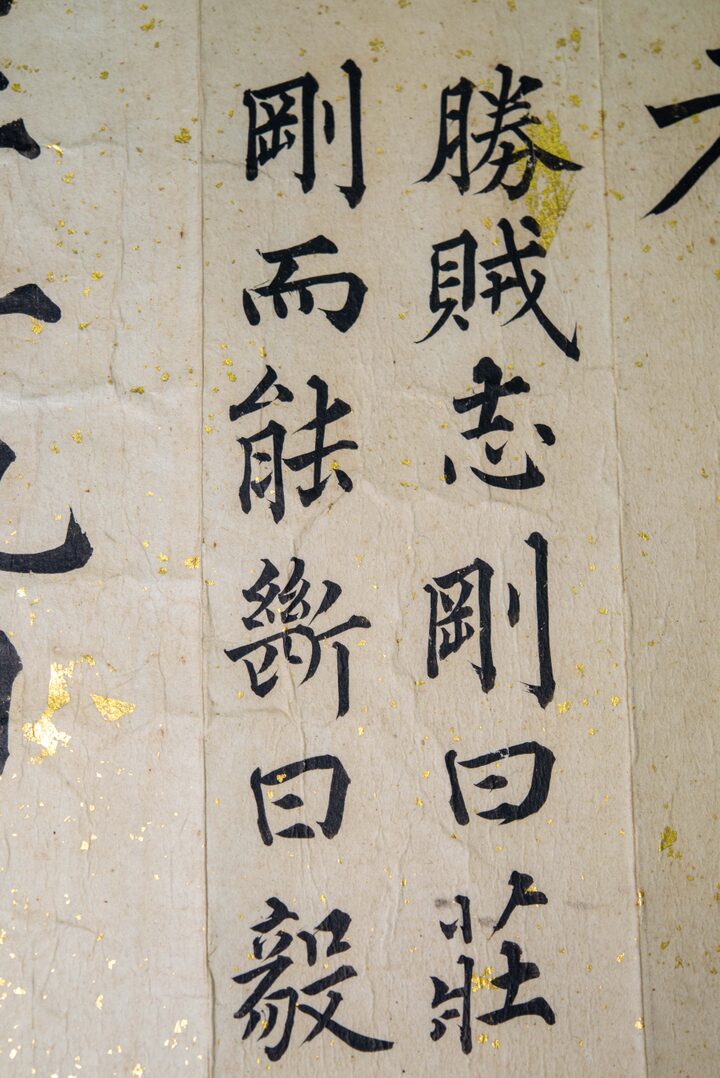 勝賊志剛曰莊
剛而能斷曰毅